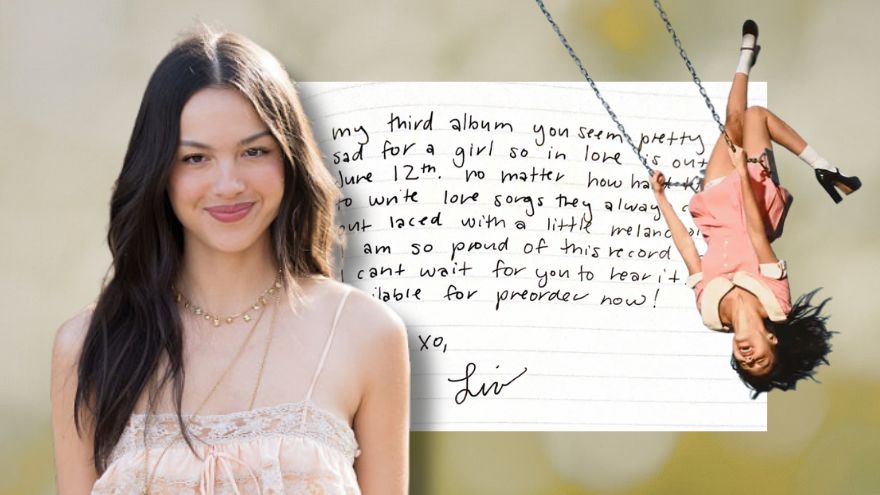 my third album you seem pretty
sad for a girl so in love is out
June 12th. no matter how
to write love songs they always
out laced with a little
am so proud of this record
I cant wait for you to hear it.
for preorder now!
xo,
Liv